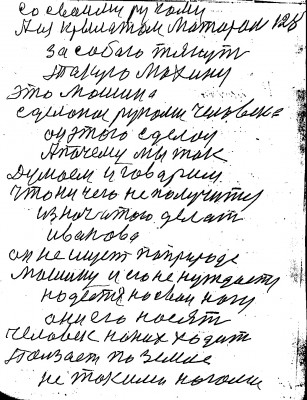 со своими ру кому
А он крылатом Моторам 128
за собаю тянут
такую махину
это машина
сделоная руками человека
он этого сделал
А почему мы так
Думаем и говорим
что ни чего не получится
из начитого делат
иванова
он не ищет поприроде
машину и он не нуждаеть
надеется на свои ногу
они его носят
человек на них ходит
ползает по земле
не такими ногами